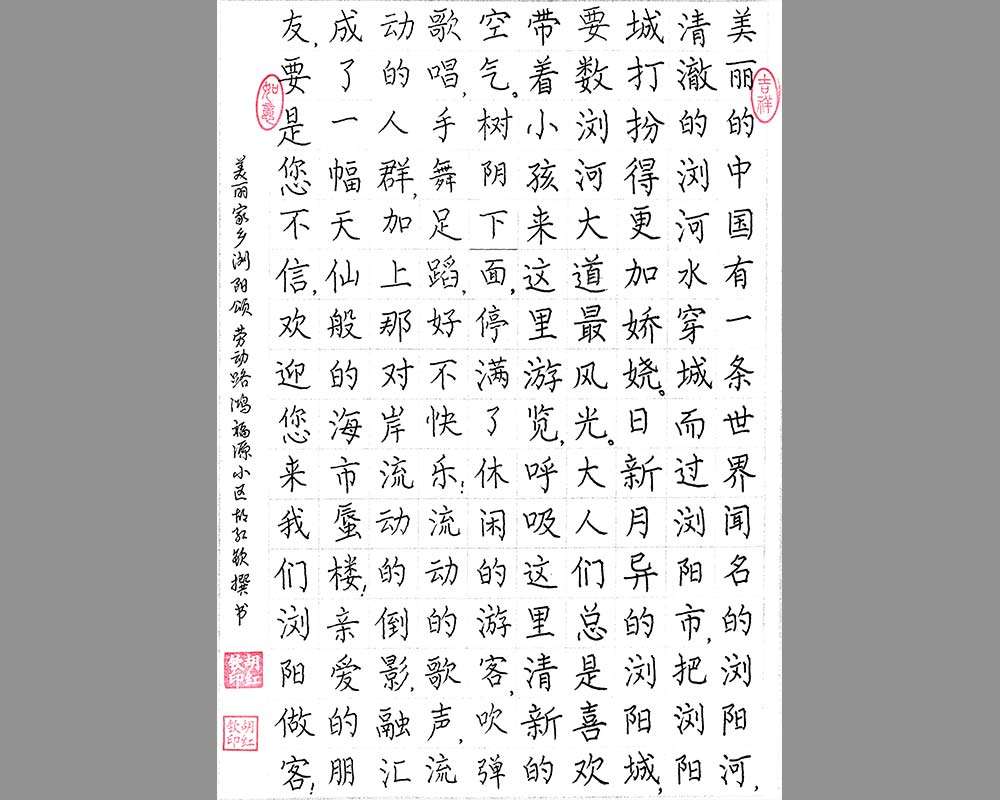 吉祥
美丽的中国有一条世界闻名的浏阳河，
清澈的浏河水穿城而过浏阳市，把浏阳
城打扮得更加娇娆。日新月异的浏阳城，
要数浏河大道最风光。大人们总是喜欢
带着小孩来这里游览，呼吸这里清新的
空气。树阴下面，停满了休闲的游客，吹弹
歌唱，手舞足蹈，好不快乐！流动的歌声，流
动的人群，加上那对岸流动的倒影，融汇
成了一幅天仙般的海市蜃楼！亲爱的朋
友，要是您不信，欢迎您来我们浏阳做客！
如意
美丽家乡浏阳颂 劳动路鸿福源小区胡红钦撰书
胡红钦印
胡红钦印